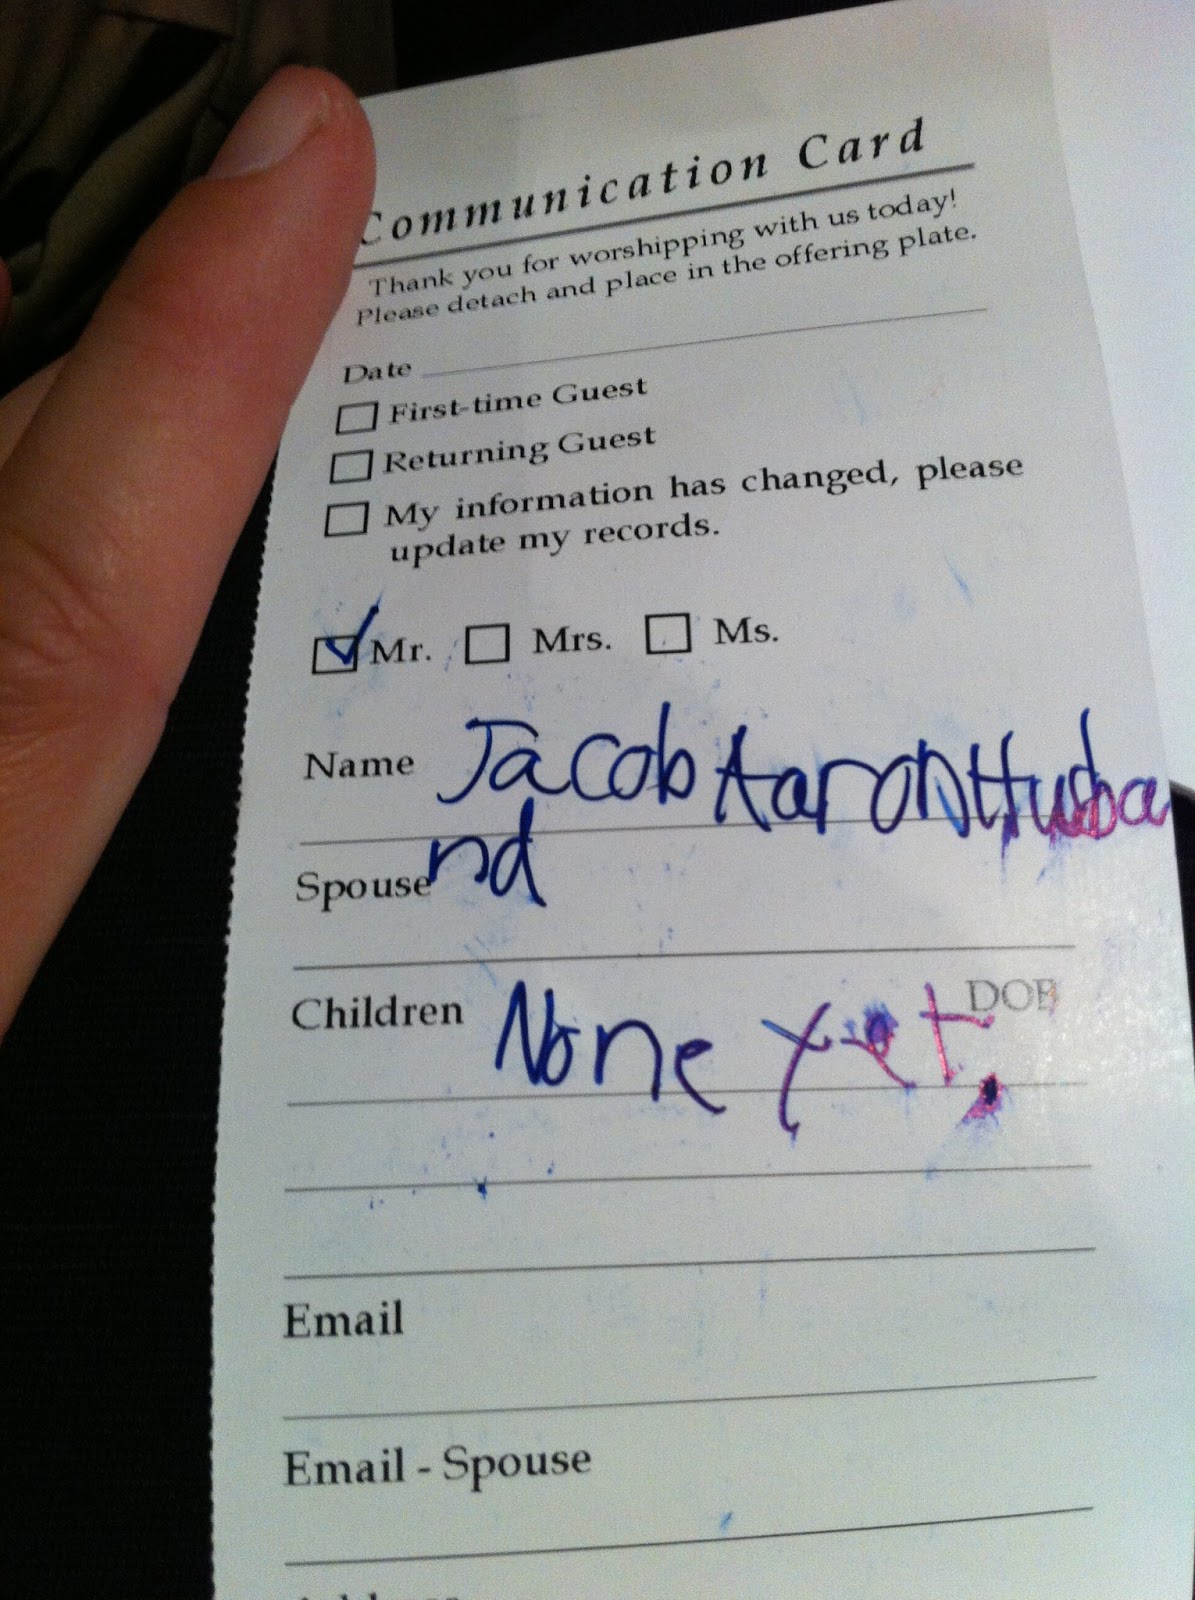 Communication Card
Thank you for worshipping with us today!
Please detach and place in the offering plate.
Date
First-time Guest
Returning Guest
My information has changed, please
update my records.
Mr. Mrs. Ms.
Name Jacob Aaron Husba
Spouse nd
Children None yet. DOB
Email
Email - Spouse